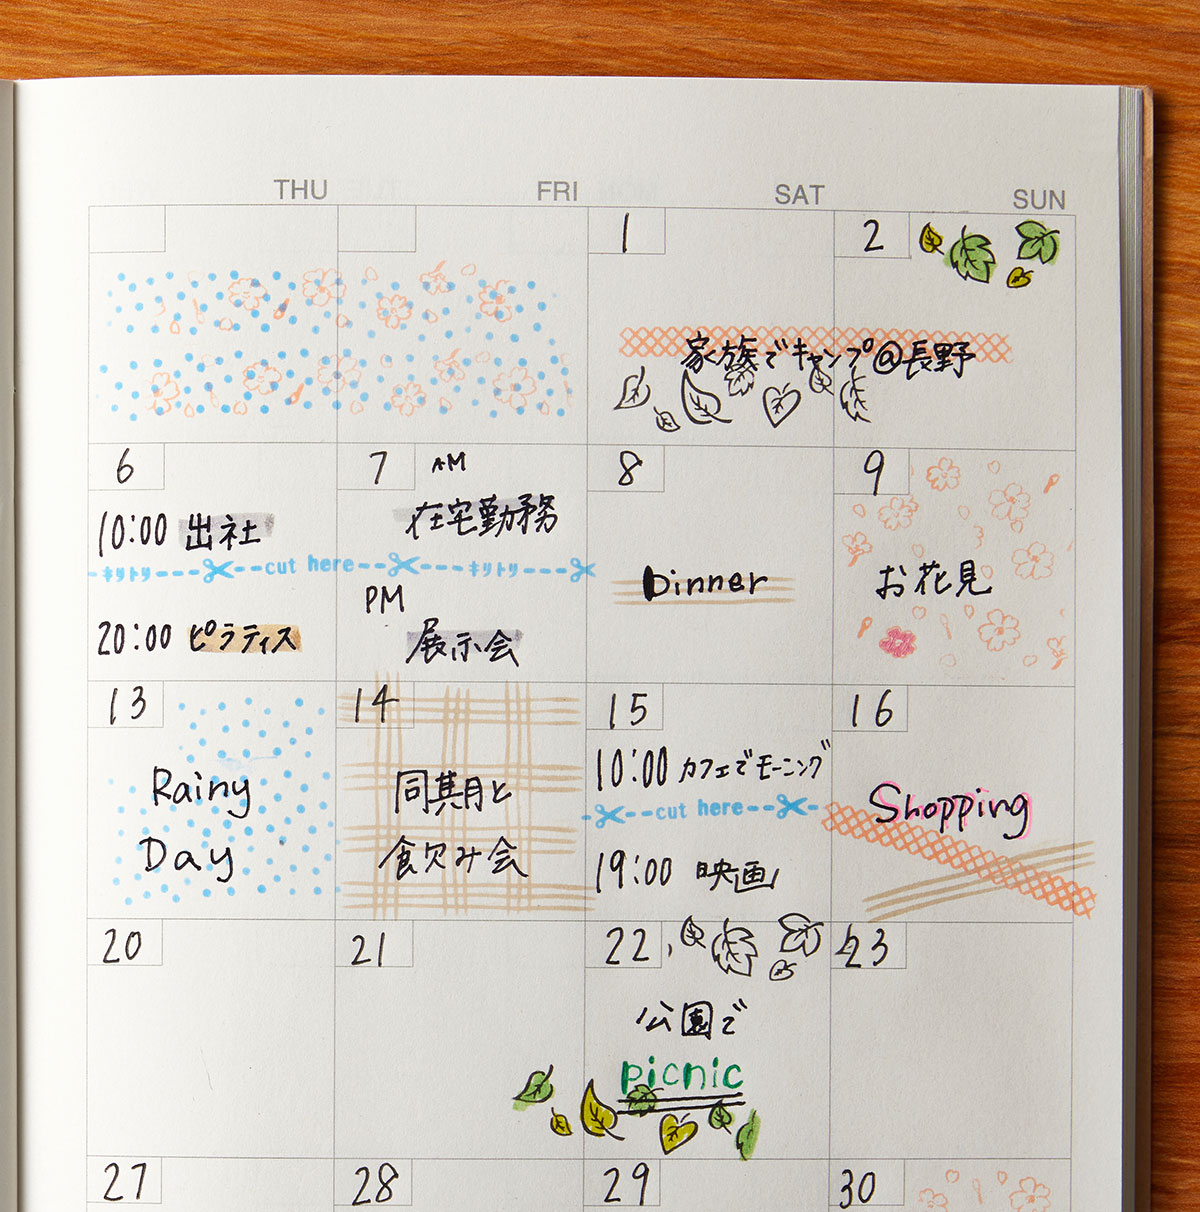 THU FRI SAT SUN
1 2
家族でキャンプ@長野
6 7 8 9
10:00 出社
キリトリ cut here キリトリ
20:00 ピラティス
AM
在宅勤務
PM
展示会
Dinner
お花見
13 14 15 16
Rainy
Day
同期と
飲み会
10:00 カフェでモーニング
cut here
19:00 映画
Shopping
20 21 22 23
公園で
picnic
27 28 29 30